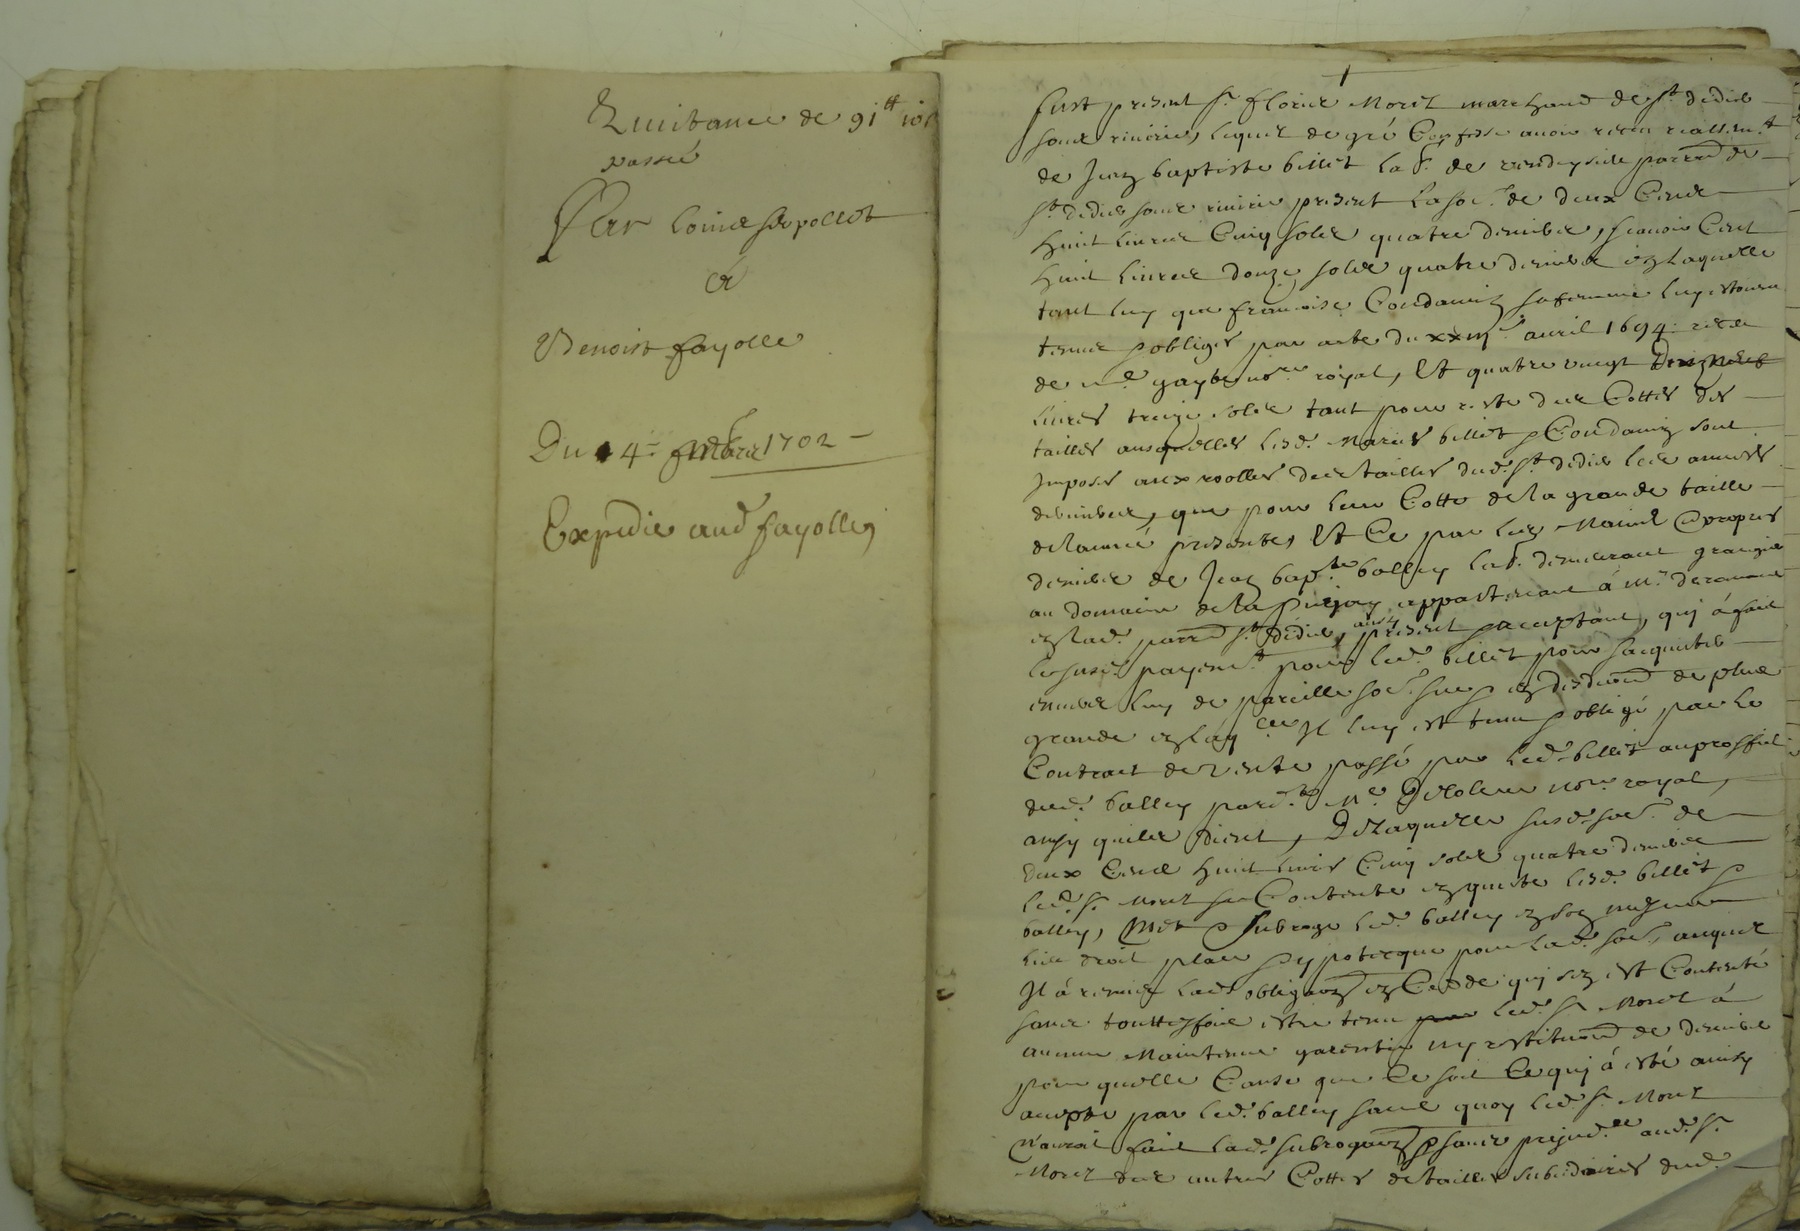 Quittance de 91tt 10s
passée
Par Louis Serpollet
et
Benoist fayolle
Du 4e 9bre 1702
Expedié aud fayolle
Fust present sr florier Morel marchand de st didier
sous riverie, lequel de gré Confesse avoir receu reallemt
de Jean baptiste billet labr de parroe de
st didier sous riverie present la soe de deux Cents
huit livres Cinq sols quatre deniers, scavoir Cent
huit livres douze sols quatre deniers en laquelle
tant luy que françoise Condamin sa femme luy estoient
tenus & obligés par acte du xxiije avril 1694 receu
de me notre royal, Et quatre vingt Dix neuf
livres treize sols tant pour reste des Cottes des
tailles ausquelles lesd. Mariés billet & Condamin sont
Imposés aux roolles des tailles dud. st didier les années
dernieres, que pour leur Cotte de la grande taille
de l'année presente, Et Ce par les Mains & propres
deniers de Jean bapte balley labr demeurant granger
au domaine de la appartenant à Mr
en lad. parroe st didier, aussy present & acceptant, qui à fait
le susd. payemt pour led. billet pour s'acquitter
envers luy de pareille soe sur & en deduon de plus
grande en laqlle Il luy est tenu & obligé par le
Contrat de vente passé par led. billet au proffit
dud. balley pardt Me notre royal,
ainsy qu'ils dient, De laquelle susd. soe de
deux Cents huit livres Cinq sols quatre deniers
led. sr Morel se Contente en quitte lesd. billet &
balley, Met & subroge led. balley en son mesme
lieu droit place & hypoteque pour lad. soe, auquel
Il à remis lad. obligaon en Cedde qui s'en est Contenté
sans touttesfois estre tenu led. sr Morel à
aucune Maintenue garentie ny restituon de deniers
pour quelle Cause que Ce soit Ce qui à esté ainsy
accepté par led. balley sans quoy led. sr Morel
n'auroit fait lad. subrogaon & sans prejudce aud. sr
Morel des autres Cottes de tailles subsidaires dud.